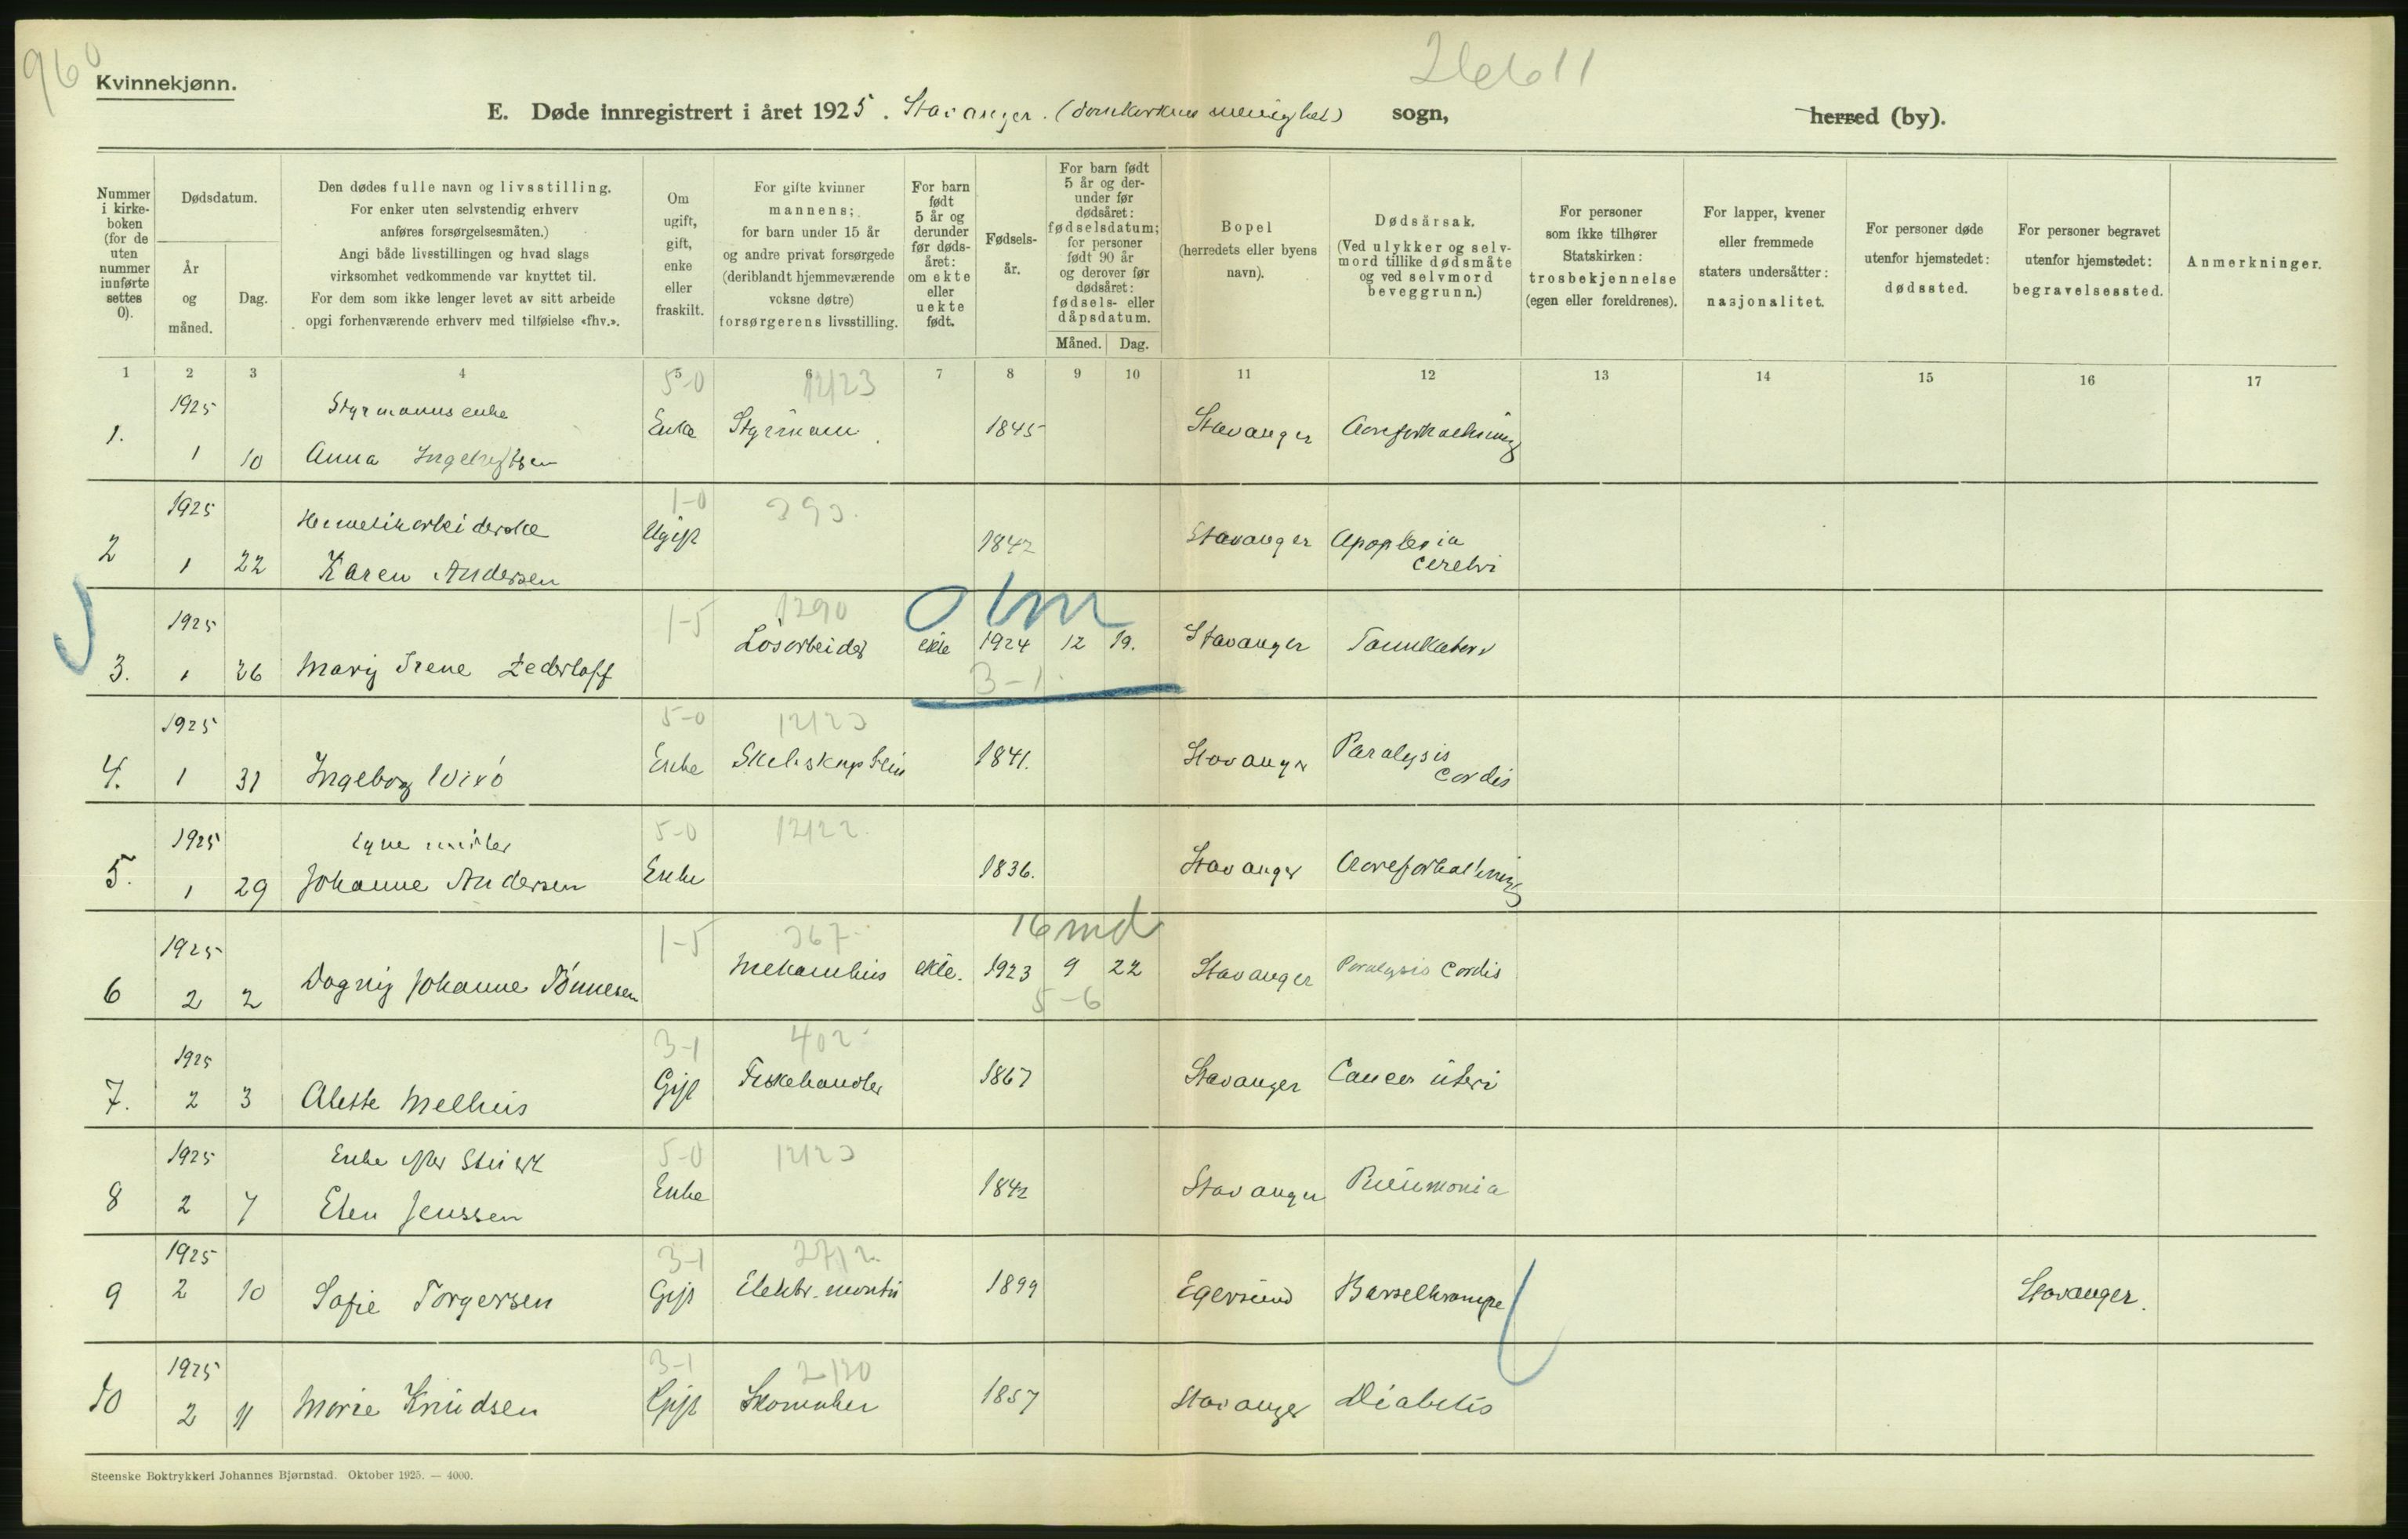 960
26611
Kvinnekjønn.
E. Døde innregistrert i året 1925. Stavanger. (Domkirkens menighet) sogn, herred (by).
Nummer i kirkeboken (for de uten nummer innførte settes 0).
Dødsdatum.
År og måned.
Dag.
Den dødes fulle navn og livsstilling.
For enker uten selvstendig erhverv
anføres forsørgelsesmåten.)
Angi både livsstillingen og hvad slags
virksomhet vedkommende var knyttet til.
For dem som ikke lenger levet av sitt arbeide
opgi forhenværende erhverv med tilføielse «fhv.».
Om ugift, gift, enke eller fraskilt.
For gifte kvinner
mannens;
for barn under 15 år
og andre privat forsørgede
(deriblandt hjemmeværende
voksne døtre)
forsørgerens livsstilling.
For barn født 5 år og derunder før dødsåret: om ekte eller uekte født.
Fødselsår.
For barn født 5 år og derunder før dødsåret: fødselsdatum; for personer født 90 år og derover før dødsåret: fødsels- eller dåpsdatum.
Måned. Dag.
Bopel
(herredets eller byens
navn).
Dødsårsak.
(Ved ulykker og selvmord tillike dødsmåte og ved selvmord beveggrunn.)
For personer
som ikke tilhører
Statskirken:
trosbekjennelse
(egen eller foreldrenes).
For lapper, kvener
eller fremmede
staters undersåtter:
nasjonalitet.
For personer døde
utenfor hjemstedet:
dødssted.
For personer begravet
utenfor hjemstedet:
begravelsessted.
Anmerkninger.
1 2 3 4 5 6 7 8 9 10 11 12 13 14 15 16 17
1925 Styrmannsenke 5-0 1223
1. 1 10 Anna Ingebrigtsen Enke Styrmann 1845 Stavanger Aareforkalkning
1925 Hermetikarbeiderske 1-0 393
2 1 22 Karen Andersen Ugift 1842 Stavanger Apoplexia cerebri
1925 1-5 1290 01m
3. 1 26 Mary Irene Zederloff Løsarbeider ekte 1924 12 19. Stavanger Tarmkatarr
3-1
1925 5-0 1223
4. 1 31 Ingeborg Wixø Enke Skibskaptein 1841. Stavanger Paralysis cordis
1925 5-0 1222
5. 1 29 Johanne Andersen Enke 1836. Stavanger Aareforkalkning
1925 1-5 367 16 md
6 2 2 Dagny Johanne Tønnesen Mekanikus ekte. 1923 9 22 Stavanger Paralysis cordis
5-6
1925 3-1 402
7. 2 3 Alette Melhus Gift Fiskehandler 1867 Stavanger Cancer uteri
1925 Enke efter 5-0 1223
8 2 7 Elen Jenssen Enke 1842 Stavanger Pneumonia
1925 3-1 2712
9 2 10 Sofie Torgersen Gift Elektr. montør 1899 Egersund Barselkrampe Stavanger.
1925 3-1 2120
10 2 11 Marie Knudsen Gift Skomaker 1857 Stavanger Diabetis
Steenske Boktrykkeri Johannes Bjørnstad. Oktober 1925. — 4000.